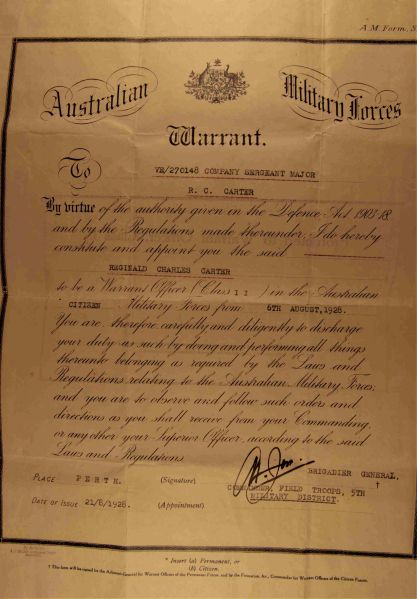 A M. Form, S
Australian Military Forces
Warrant.
To VE/270148 COMPANY SERGEANT MAJOR
R. C. CARTER
By virtue of the authority given in the Defence Act 1903-18
and by the Regulations made thereunder, I do hereby
constitute and appoint you the said
REGINALD CHARLES CARTER
to be a Warrant Officer (Class 11) in the Australian
CITIZEN Military Forces from 6TH AUGUST, 1928.
You are, therefore, carefully and diligently to discharge
your duty as such by doing and performing all things
thereunto belonging as required by the Laws and
Regulations relating to the Australian Military Forces,
and you are to observe and follow such orders and
directions as you shall receive from your Commanding,
or any other your Superior Officer, according to the said
Laws and Regulations
PLACE PERTH. (Signature) BRIGADIER GENERAL, †
COMMANDER, FIELD TROOPS, 5TH
DATE OF ISSUE 21/8/1928. (Appointment) MILITARY DISTRICT.
* Insert (a) Permanent, or
(b) Citizen.
† This form will be issued by the Adjutant-General for Warrant Officers of the Permanent Forces, and by the Formation, &c., Commander for Warrant Officers of the Citizen Forces.